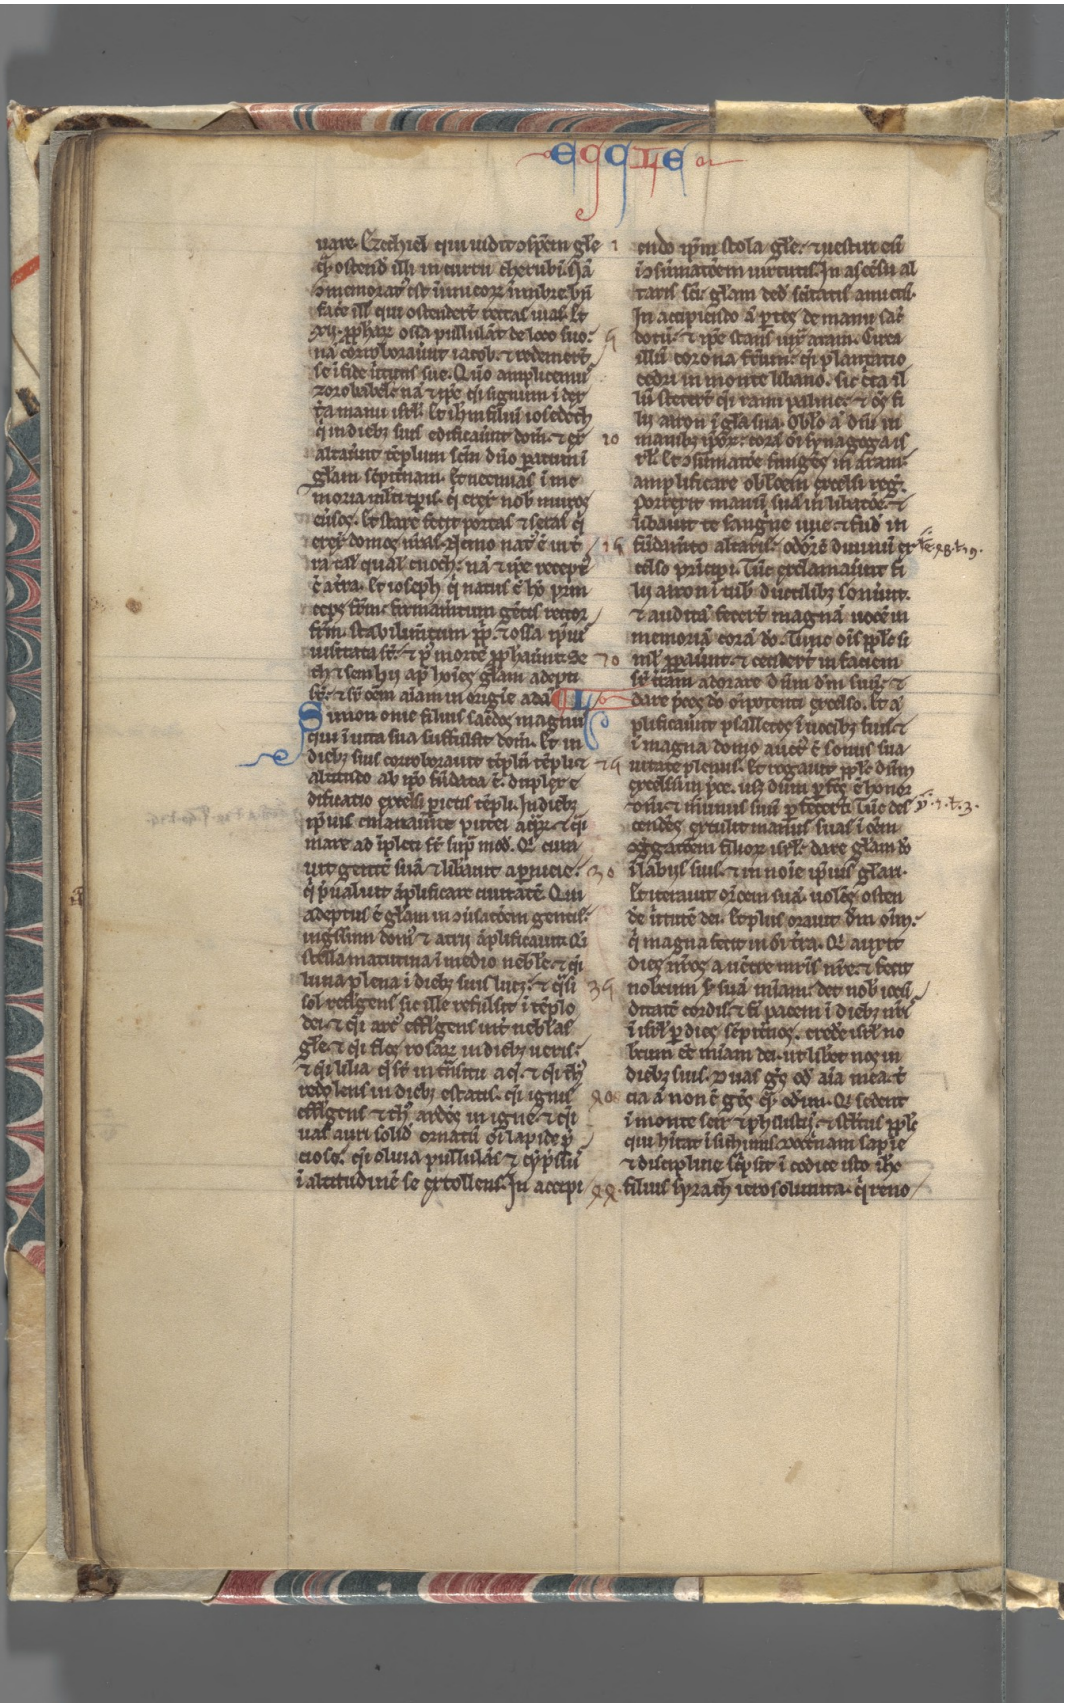 ECCLE
uare. Ezechiel qui uidit ɔspc̄m gl̄e
q̄ ostend̄ illi in curru cherubī. Nā
ɔmemorat' est inimicoꝝ ī imbre. bn̄
fac̄e ill' qui ostender̄t rectas uias. Et
.xij. ꝓphaꝝ ossa pullulāt de loco suo.
nā corroborauūt iacob. ⁊ redemer̄t
se ī fide ūtutis sue. Quō amplicemꝰ
zorobabel. nā ⁊ ip̄e q̄i signum ī dex
t̄a manu isrl̄. Et ih̄m filiū iosedech
q̄ in diebꝫ suis edificauūt domū. ⁊ ex
altauūt tēplum sc̄m dn̄o paratum ī
gl̄am sēpit̄nam. Et neemias ī me
moria mlti tp̄is. q̄ erex̄ nob̄ muros
eūsos. Et stare fecit portas ⁊ seras q̄
erex̄ domos nr̄as. Nemo nat' ē in t̄
ra tal' qual' enoch. nā ⁊ ip̄e recept'
ē a t̄ra. Et ioseph q̄ natus ē hō prin
ceps fr̄m. firmam̄tum gētis rector
fr̄m. stabilim̄tum ppl̄i. ⁊ ossa ip̄iꝰ
uisitata sūt. ⁊ p̄ mortē ꝓphauūt. Se
th ⁊ sem hij ap̄ hoīes gl̄am adepti
sūt. ⁊ sr̄ oēm aīam in origīe adā. L
Simon onie filius sac̄dos magnꝰ
qui ī uita sua suffulsit domū. Et in
diebꝫ suis corroborauit tēplū. tēpli ⁊
altitudo ab ip̄o fūdata ē. duplex e
dificatio excelsi parietes tēpli. In diebꝫ
ip̄ius emanauūt putei aq̄ꝝ. ⁊ q̄i
mare adīpleti sūt sup̄ modū. Qi cura
uit gentē suā ⁊ libauit a pernicie.
q̄ p̄ualuit āplificare ciuitatē. Qui
adeptus ē gl̄am in ɔūsatōem gentis.
ingssum dom' ⁊ atrij āplificauit. Qi
stella matutina ī medio nebl̄e. ⁊ q̄i
luna plena ī diebꝫ suis lucꝫ. ⁊ q̄i
sol refl̄gens sic ille refulsit ī tēplo
dei. ⁊ q̄i arcꝰ effl̄gens int̄ neblas
gl̄e. ⁊ q̄i flos rosaꝝ in diebꝫ ueris.
⁊ q̄i lilia q̄ sūt in t̄nsitu aq̄. ⁊ q̄i thꝰ
redolens in diebꝫ estatis. q̄i ignis
effl̄gens ⁊ thꝰ ardēs in igne. ⁊ q̄i
uas auri solidū ornatū oī lapide p̄
cioso. q̄i oliua pullulās ⁊ cyp̄ssꝰ
ī altitudinē se extollens. In accipi
1
5
10
15
20
25
30
35
40
44
endo ip̄m stola gl̄e. ⁊ uestire eū
ī ɔsūmatōem uirtutis. In ascēsu al
taris sc̄i gl̄am ded̄ sc̄itatis amictū.
In accipiendo ā ꝑtes de manu sac̄
dotū. ⁊ ip̄e stans iux̄ aram. Circa
illū corona fr̄um. q̄i plantatio
cedri in monte libano. sic c̄ca il
lū steter̄t q̄i rami palme. ⁊ oēs fi
lij aaron ī gl̄a sua. Oblō ā dn̄i in
manibꝫ ip̄oꝝ. corā oī synagoga is
rl̄. Et ɔsūmatōe fungēs in aram.
amplificare oblōem excelsi regis.
Porrexit manū suā in libatōe. ⁊
libauit de sanguīe uue ⁊ fud̄ in
fūdam̄to altaris. odorē diuinū ex
celso principi. Tūc exclamauūt fi
lij aaron ī tub' ductilibꝫ sonuūt.
⁊ auditā fecer̄t magnā uocē in
memoriā corā dō. Tunc oīs ppl̄s si
ml̄ ꝓpauūt. ⁊ cecider̄t in faciem
sr̄ t̄rā adorare dn̄m dm̄ suū. ⁊
dare p̄ces dō oīpotenti excelso. Et ā
plificauūt psallētes ī uocibꝫ suis. ⁊
ī magna domo auctꝰ ē sonus sua
uitate plenus. Et rogauit ppl̄s dn̄m
excelsum in p̄ce. usqꝫ dum ꝑfc̄s ē honor
dn̄i. ⁊ munus suū ꝑfecer̄t. Tūc des
cendēs extulit manus suas ī oēm
ɔḡgatōem filioꝝ isrl̄. dare gl̄am dō
ī labijs suis. ⁊ in noīe ip̄ius gl̄ari.
Et iterauit or̄oem suā. uolēs osten
de ūtutē dei. Et plus orauit dm̄ oīm.
q̄ magna fecit in oī t̄ra. Qi auxit
dies nr̄os a uētre mr̄is nr̄e. ⁊ fecit
nobcum s̄ suā mīam. det nob̄ iocū
ditatē cordis. ⁊ fi' pacem ī diebꝫ nr̄is
ī isrl̄ ꝑ dies sēpit̄nos. crede isrl̄ no
bcum eē mīam dei. ut libet nos in
diebꝫ suis. Duas gētes od̄ aīa mea. t̄
cia ā non ē gēs q̄ʒ odim. Qi sedent
ī monte seir ⁊ phylistijm. ⁊ stl̄tus ppl̄s
qui hītat ī sichimis. doctnam sapīe
⁊ discipline sc̄psit ī codice isto ih̄s
filius syrach ierosolimita. q̄ reno